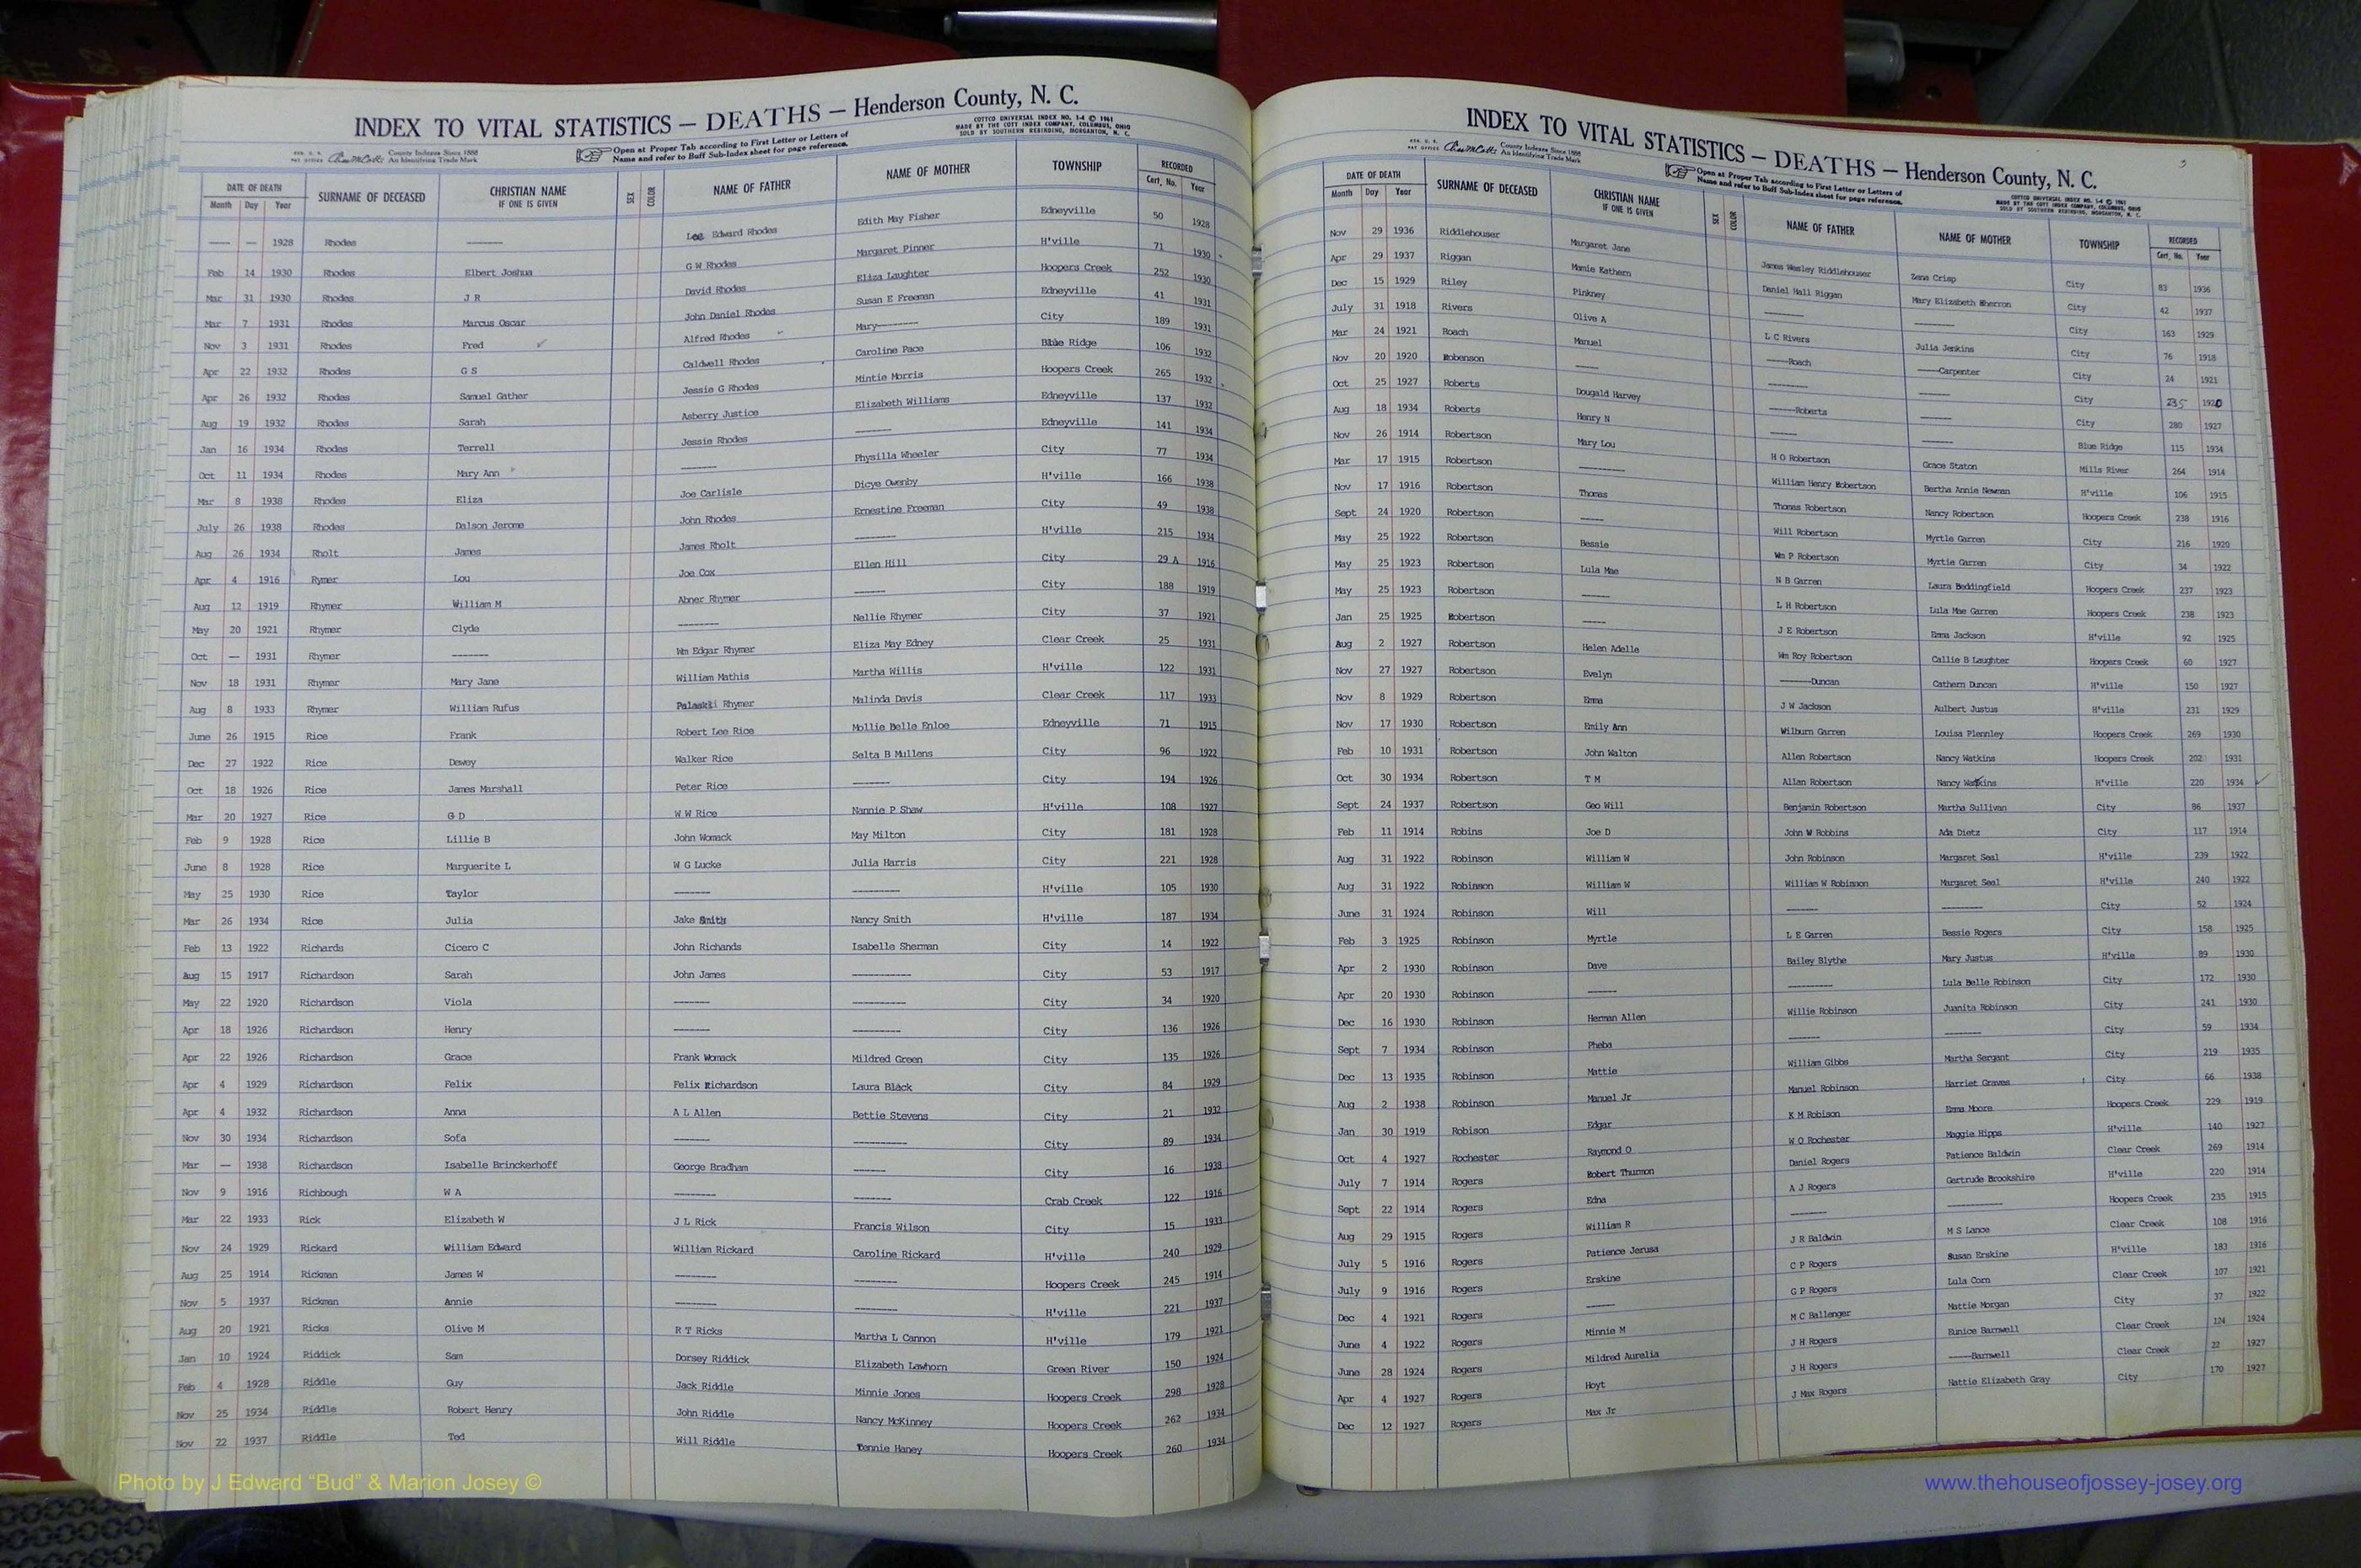 INDEX TO VITAL STATISTICS — DEATHS — Henderson County, N. C.
COTTCO UNIVERSAL INDEX NO. 1-4 © 1961
MADE BY THE COTT INDEX COMPANY, COLUMBUS, OHIO
SOLD BY SOUTHERN REBINDING, MORGANTON, N. C.
County Indexes Since 1888
An Identifying Trade Mark
Open at Proper Tab according to First Letter or Letters of
Name and refer to Buff Sub-Index sheet for page reference.
DATE OF DEATH SURNAME OF DECEASED CHRISTIAN NAME IF ONE IS GIVEN SEX COLOR NAME OF FATHER NAME OF MOTHER TOWNSHIP RECORDED
Month Day Year Cert. No. Year
—— — 1928 Rhodes ——— Lee Edward Rhodes Edith May Fisher Edneyville 50 1928
Feb 14 1930 Rhodes Elbert Joshua G W Rhodes Margaret Pinner H'ville 71 1930
Mar 31 1930 Rhodes J R David Rhodes Eliza Laughter Hoopers Creek 252 1930
Mar 7 1931 Rhodes Marcus Oscar John Daniel Rhodes Susan E Freeman Edneyville 41 1931
Nov 3 1931 Rhodes Fred ✓ Alfred Rhodes Mary——— City 189 1931
Apr 22 1932 Rhodes G S Caldwell Rhodes Caroline Pace Blue Ridge 106 1932
Apr 26 1932 Rhodes Samuel Gather Jessie G Rhodes Mintie Morris Hoopers Creek 265 1932
Aug 19 1932 Rhodes Sarah Asberry Justice Elizabeth Williams Edneyville 137 1932
Jan 16 1934 Rhodes Terrell Jessie Rhodes ——— Edneyville 141 1934
Oct 11 1934 Rhodes Mary Ann ——— Physilla Wheeler City 77 1934
Mar 8 1938 Rhodes Eliza Joe Carlisle Dicye Owenby H'ville 166 1938
July 26 1938 Rhodes Dalson Jerome John Rhodes Ernestine Freeman City 49 1938
Aug 26 1934 Rholt James James Rholt ——— H'ville 215 1934
Apr 4 1916 Rymer Lou Joe Cox Ellen Hill City 29 A 1916
Aug 12 1919 Rhymer William M Abner Rhymer ——— City 188 1919
May 20 1921 Rhymer Clyde ——— Nellie Rhymer City 37 1921
Oct — 1931 Rhymer ——— Wm Edgar Rhymer Eliza May Edney Clear Creek 25 1931
Nov 18 1931 Rhymer Mary Jane William Mathis Martha Willis H'ville 122 1931
Aug 8 1933 Rhymer William Rufus Palaski Rhymer Malinda Davis Clear Creek 117 1933
June 26 1915 Rice Frank Robert Lee Rice Mollie Belle Enloe Edneyville 71 1915
Dec 27 1922 Rice Dewey Walker Rice Selta B Mullens City 96 1922
Oct 18 1926 Rice James Marshall Peter Rice ——— City 194 1926
Mar 20 1927 Rice G D W W Rice Nannie P Shaw H'ville 108 1927
Feb 9 1928 Rice Lillie B John Womack May Milton City 181 1928
June 8 1928 Rice Marguerite L W G Lucke Julia Harris City 221 1928
May 25 1930 Rice Taylor ——— ——— H'ville 105 1930
Mar 26 1934 Rice Julia Jake Smith Nancy Smith H'ville 187 1934
Feb 13 1922 Richards Cicero C John Richands Isabelle Sherman City 14 1922
Aug 15 1917 Richardson Sarah John James ——— City 53 1917
May 22 1920 Richardson Viola ——— ——— City 34 1920
Apr 18 1926 Richardson Henry ——— ——— City 136 1926
Apr 22 1926 Richardson Grace Frank Womack Mildred Green City 135 1926
Apr 4 1929 Richardson Felix Felix Richardson Laura Black City 84 1929
Apr 4 1932 Richardson Anna A L Allen Bettie Stevens City 21 1932
Nov 30 1934 Richardson Sofa ——— ——— City 89 1934
Mar — 1938 Richardson Isabelle Brinckerhoff George Bradham ——— City 16 1938
Nov 9 1916 Richbough W A ——— ——— Crab Creek 122 1916
Mar 22 1933 Rick Elizabeth W J L Rick Francis Wilson City 15 1933
Nov 24 1929 Rickard William Edward William Rickard Caroline Rickard H'ville 240 1929
Aug 25 1914 Rickman James W ——— ——— Hoopers Creek 245 1914
Nov 5 1937 Rickman Annie ——— ——— H'ville 221 1937
Aug 20 1921 Ricks Olive M R T Ricks Martha L Cannon H'ville 179 1921
Jan 10 1924 Riddick Sam Dorsey Riddick Elizabeth Lawhorn Green River 150 1924
Feb 4 1928 Riddle Guy Jack Riddle Minnie Jones Hoopers Creek 298 1928
Nov 25 1934 Riddle Robert Henry John Riddle Nancy McKinney Hoopers Creek 262 1934
Nov 22 1937 Riddle Ted Will Riddle Tennie Haney Hoopers Creek 260 1934
INDEX TO VITAL STATISTICS — DEATHS — Henderson County, N. C.
3
County Indexes Since 1888
An Identifying Trade Mark
Open at Proper Tab according to First Letter or Letters of
Name and refer to Buff Sub-Index sheet for page reference.
COTTCO UNIVERSAL INDEX NO. 1-4 © 1961
MADE BY THE COTT INDEX COMPANY, COLUMBUS, OHIO
SOLD BY SOUTHERN REBINDING, MORGANTON, N. C.
DATE OF DEATH SURNAME OF DECEASED CHRISTIAN NAME IF ONE IS GIVEN SEX COLOR NAME OF FATHER NAME OF MOTHER TOWNSHIP RECORDED
Month Day Year Cert. No. Year
Nov 29 1936 Riddlehouser Margaret Jane James Wesley Riddlehouser Zena Crisp City 83 1936
Apr 29 1937 Riggan Mamie Kathern Daniel Hall Riggan Mary Elizabeth Sherron City 42 1937
Dec 15 1929 Riley Pinkney ——— ——— City 163 1929
July 31 1918 Rivers Olive A L C Rivers Julia Jenkins City 76 1918
Mar 24 1921 Roach Manuel ——Roach ——Carpenter City 24 1921
Nov 20 1920 Robenson ——— ——— ——— City 235 1920
Oct 25 1927 Roberts Dougald Harvey ——Roberts ——— City 280 1927
Aug 18 1934 Roberts Henry N ——— ——— Blue Ridge 115 1934
Nov 26 1914 Robertson Mary Lou H O Robertson Grace Staton Mills River 264 1914
Mar 17 1915 Robertson ——— William Henry Robertson Bertha Annie Newman H'ville 106 1915
Nov 17 1916 Robertson Thomas Thomas Robertson Nancy Robertson Hoopers Creek 238 1916
Sept 24 1920 Robertson ——— Will Robertson Myrtle Garren City 216 1920
May 25 1922 Robertson Bessie Wm P Robertson Myrtie Garren City 34 1922
May 25 1923 Robertson Lula Mae N B Garren Laura Beddingfield Hoopers Creek 237 1923
May 25 1923 Robertson ——— L H Robertson Lula Mae Garren Hoopers Creek 238 1923
Jan 25 1925 Robertson ——— J E Robertson Emma Jackson H'ville 92 1925
Aug 2 1927 Robertson Helen Adelle Wm Roy Robertson Callie B Laughter Hoopers Creek 60 1927
Nov 27 1927 Robertson Evelyn ———Duncan Cathern Duncan H'ville 150 1927
Nov 8 1929 Robertson Emma J W Jackson Aulbert Justus H'ville 231 1929
Nov 17 1930 Robertson Emily Ann Wilburn Garren Louisa Plennley Hoopers Creek 269 1930
Feb 10 1931 Robertson John Walton Allen Robertson Nancy Watkins Hoopers Creek 202 1931
Oct 30 1934 Robertson T M Allan Robertson Nancy Watkins H'ville 220 1934 ✓
Sept 24 1937 Robertson Geo Will Benjamin Robertson Martha Sullivan City 86 1937
Feb 11 1914 Robins Joe D John W Robbins Ada Dietz City 117 1914
Aug 31 1922 Robinson William W John Robinson Margaret Seal H'ville 239 1922
Aug 31 1922 Robinson William W William W Robinson Margaret Seal H'ville 240 1922
June 31 1924 Robinson Will ——— ——— City 52 1924
Feb 3 1925 Robinson Myrtle L E Garren Bessie Rogers City 158 1925
Apr 2 1930 Robinson Dave Bailey Blythe Mary Justus H'ville 89 1930
Apr 20 1930 Robinson ——— ——— Lula Belle Robinson City 172 1930
Dec 16 1930 Robinson Herman Allen Willie Robinson Juanita Robinson City 241 1930
Sept 7 1934 Robinson Pheba ——— ——— City 59 1934
Dec 13 1935 Robinson Mattie William Gibbs Martha Sergant City 219 1935
Aug 2 1938 Robinson Manuel Jr Manuel Robinson Harriet Graves City 66 1938
Jan 30 1919 Robison Edgar K M Robison Emma Moore Hoopers Creek 229 1919
Oct 4 1927 Rochester Raymond O W O Rochester Maggie Hipps H'ville 140 1927
July 7 1914 Rogers Robert Thurmon Daniel Rogers Patience Baldwin Clear Creek 269 1914
Sept 22 1914 Rogers Edna A J Rogers Gertrude Brookshire H'ville 220 1914
Aug 29 1915 Rogers William R ——— ——— Hoopers Creek 235 1915
July 5 1916 Rogers Patience Jerusa J R Baldwin M S Lance Clear Creek 108 1916
July 9 1916 Rogers Erskine C P Rogers Susan Erskine H'ville 183 1916
Dec 4 1921 Rogers ——— G P Rogers Lula Corn Clear Creek 107 1921
June 4 1922 Rogers Minnie M M C Ballenger Mattie Morgan City 37 1922
June 28 1924 Rogers Mildred Aurelia J H Rogers Eunice Barnwell Clear Creek 124 1924
Apr 4 1927 Rogers Hoyt J H Rogers ——Barnwell Clear Creek 22 1927
Dec 12 1927 Rogers Max Jr J Max Rogers Hattie Elizabeth Gray City 170 1927
Photo by J Edward “Bud” & Marion Josey ©
www.thehouseofjossey-josey.org